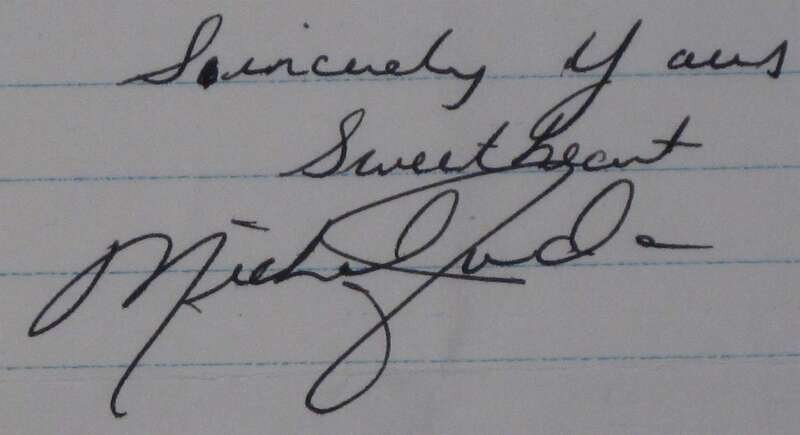 Sincerely Yours
Sweetheart
Michael